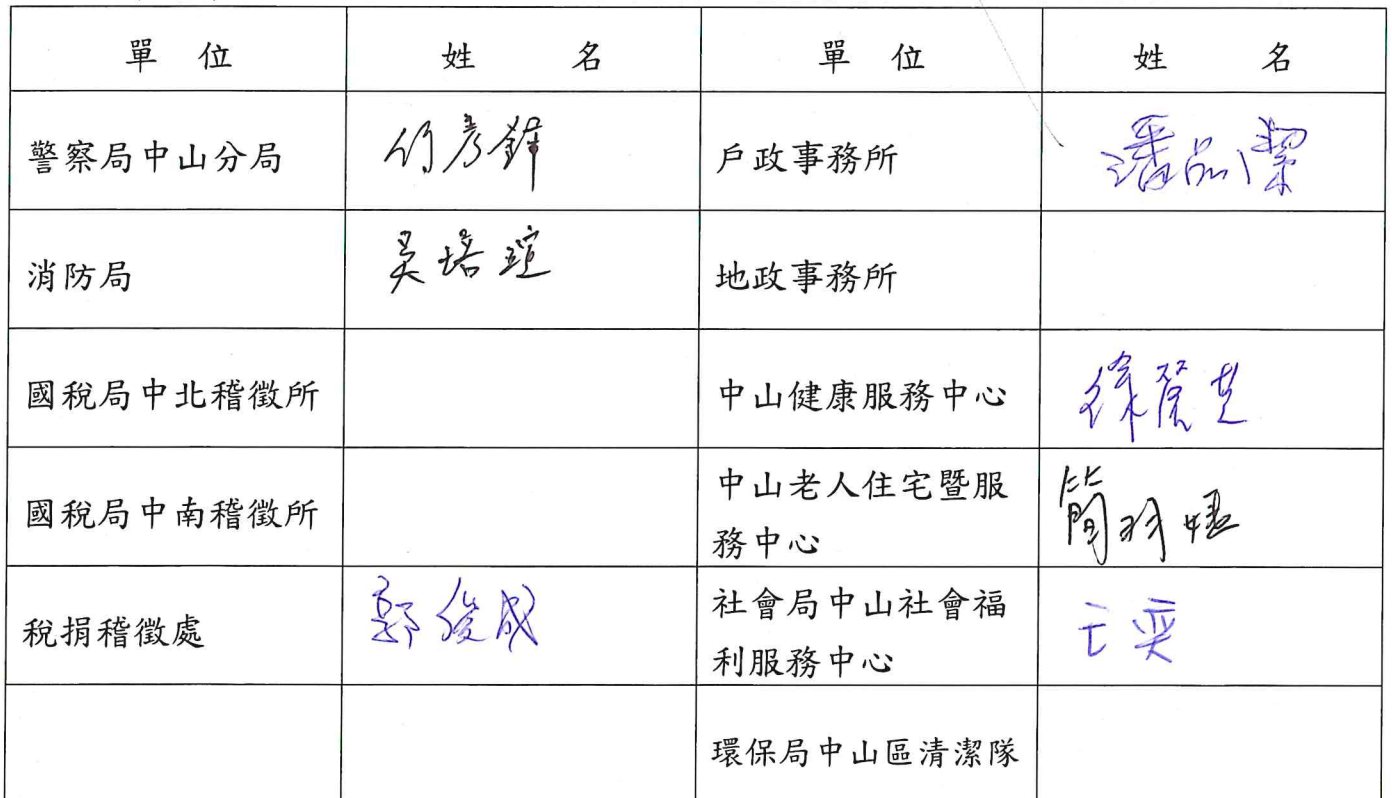 單 位 姓 名 單 位 姓 名
警察局中山分局 何彥鋒 戶政事務所 潘品潔
消防局 吳培瑄 地政事務所
國稅局中北稽徵所 中山健康服務中心 徐
國稅局中南稽徵所 中山老人住宅暨服
務中心 簡羽
稅捐稽徵處 郭俊成 社會局中山社會福
利服務中心 奕
環保局中山區清潔隊